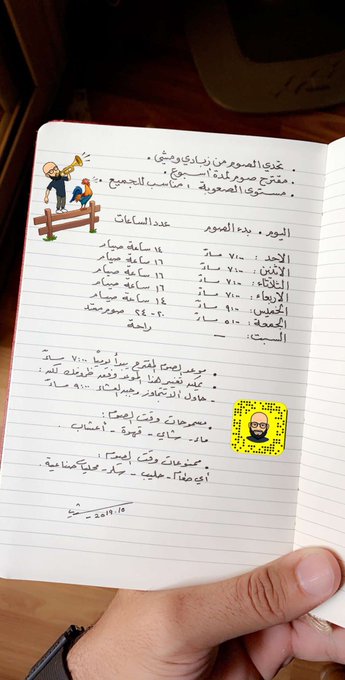 • تحدي الصوم من زبادي ومشي •
• مقترح صوم لمدة أسبوع •
• مستوى الصعوبة : مناسب للجميع •
اليوم • بدء الصوم عدد الساعات
الأحد : ٧:٠٠ مساءً ١٤ ساعة صيام
الاثنين : ٧:٠٠ مساءً ١٦ ساعة صيام
الثلاثاء : ٧:٠٠ مساءً ١٦ ساعة صيام
الأربعاء : ٧:٠٠ مساءً ١٦ ساعة صيام
الخميس : ٩:٠٠ مساءً ١٤ ساعة صيام
الجمعة : ٥:٠٠ مساءً ٢٠-٢٤ صوم ممتد
السبت : — راحة
• موعد الصوم المقترح يبدأ يوميًا ٧:٠٠ مساءً
• يمكنك تغيير هذا الموعد وفق ظروفك لكن :
- حاول ألا تتجاوز وجبة العشاء ٩:٠٠ مساءً
• مسموحات وقت الصوم :
ماء - شاي - قهوة - أعشاب .
• ممنوعات وقت الصوم :
أي طعام - حليب - سكر - محليات صناعية .
2019.10